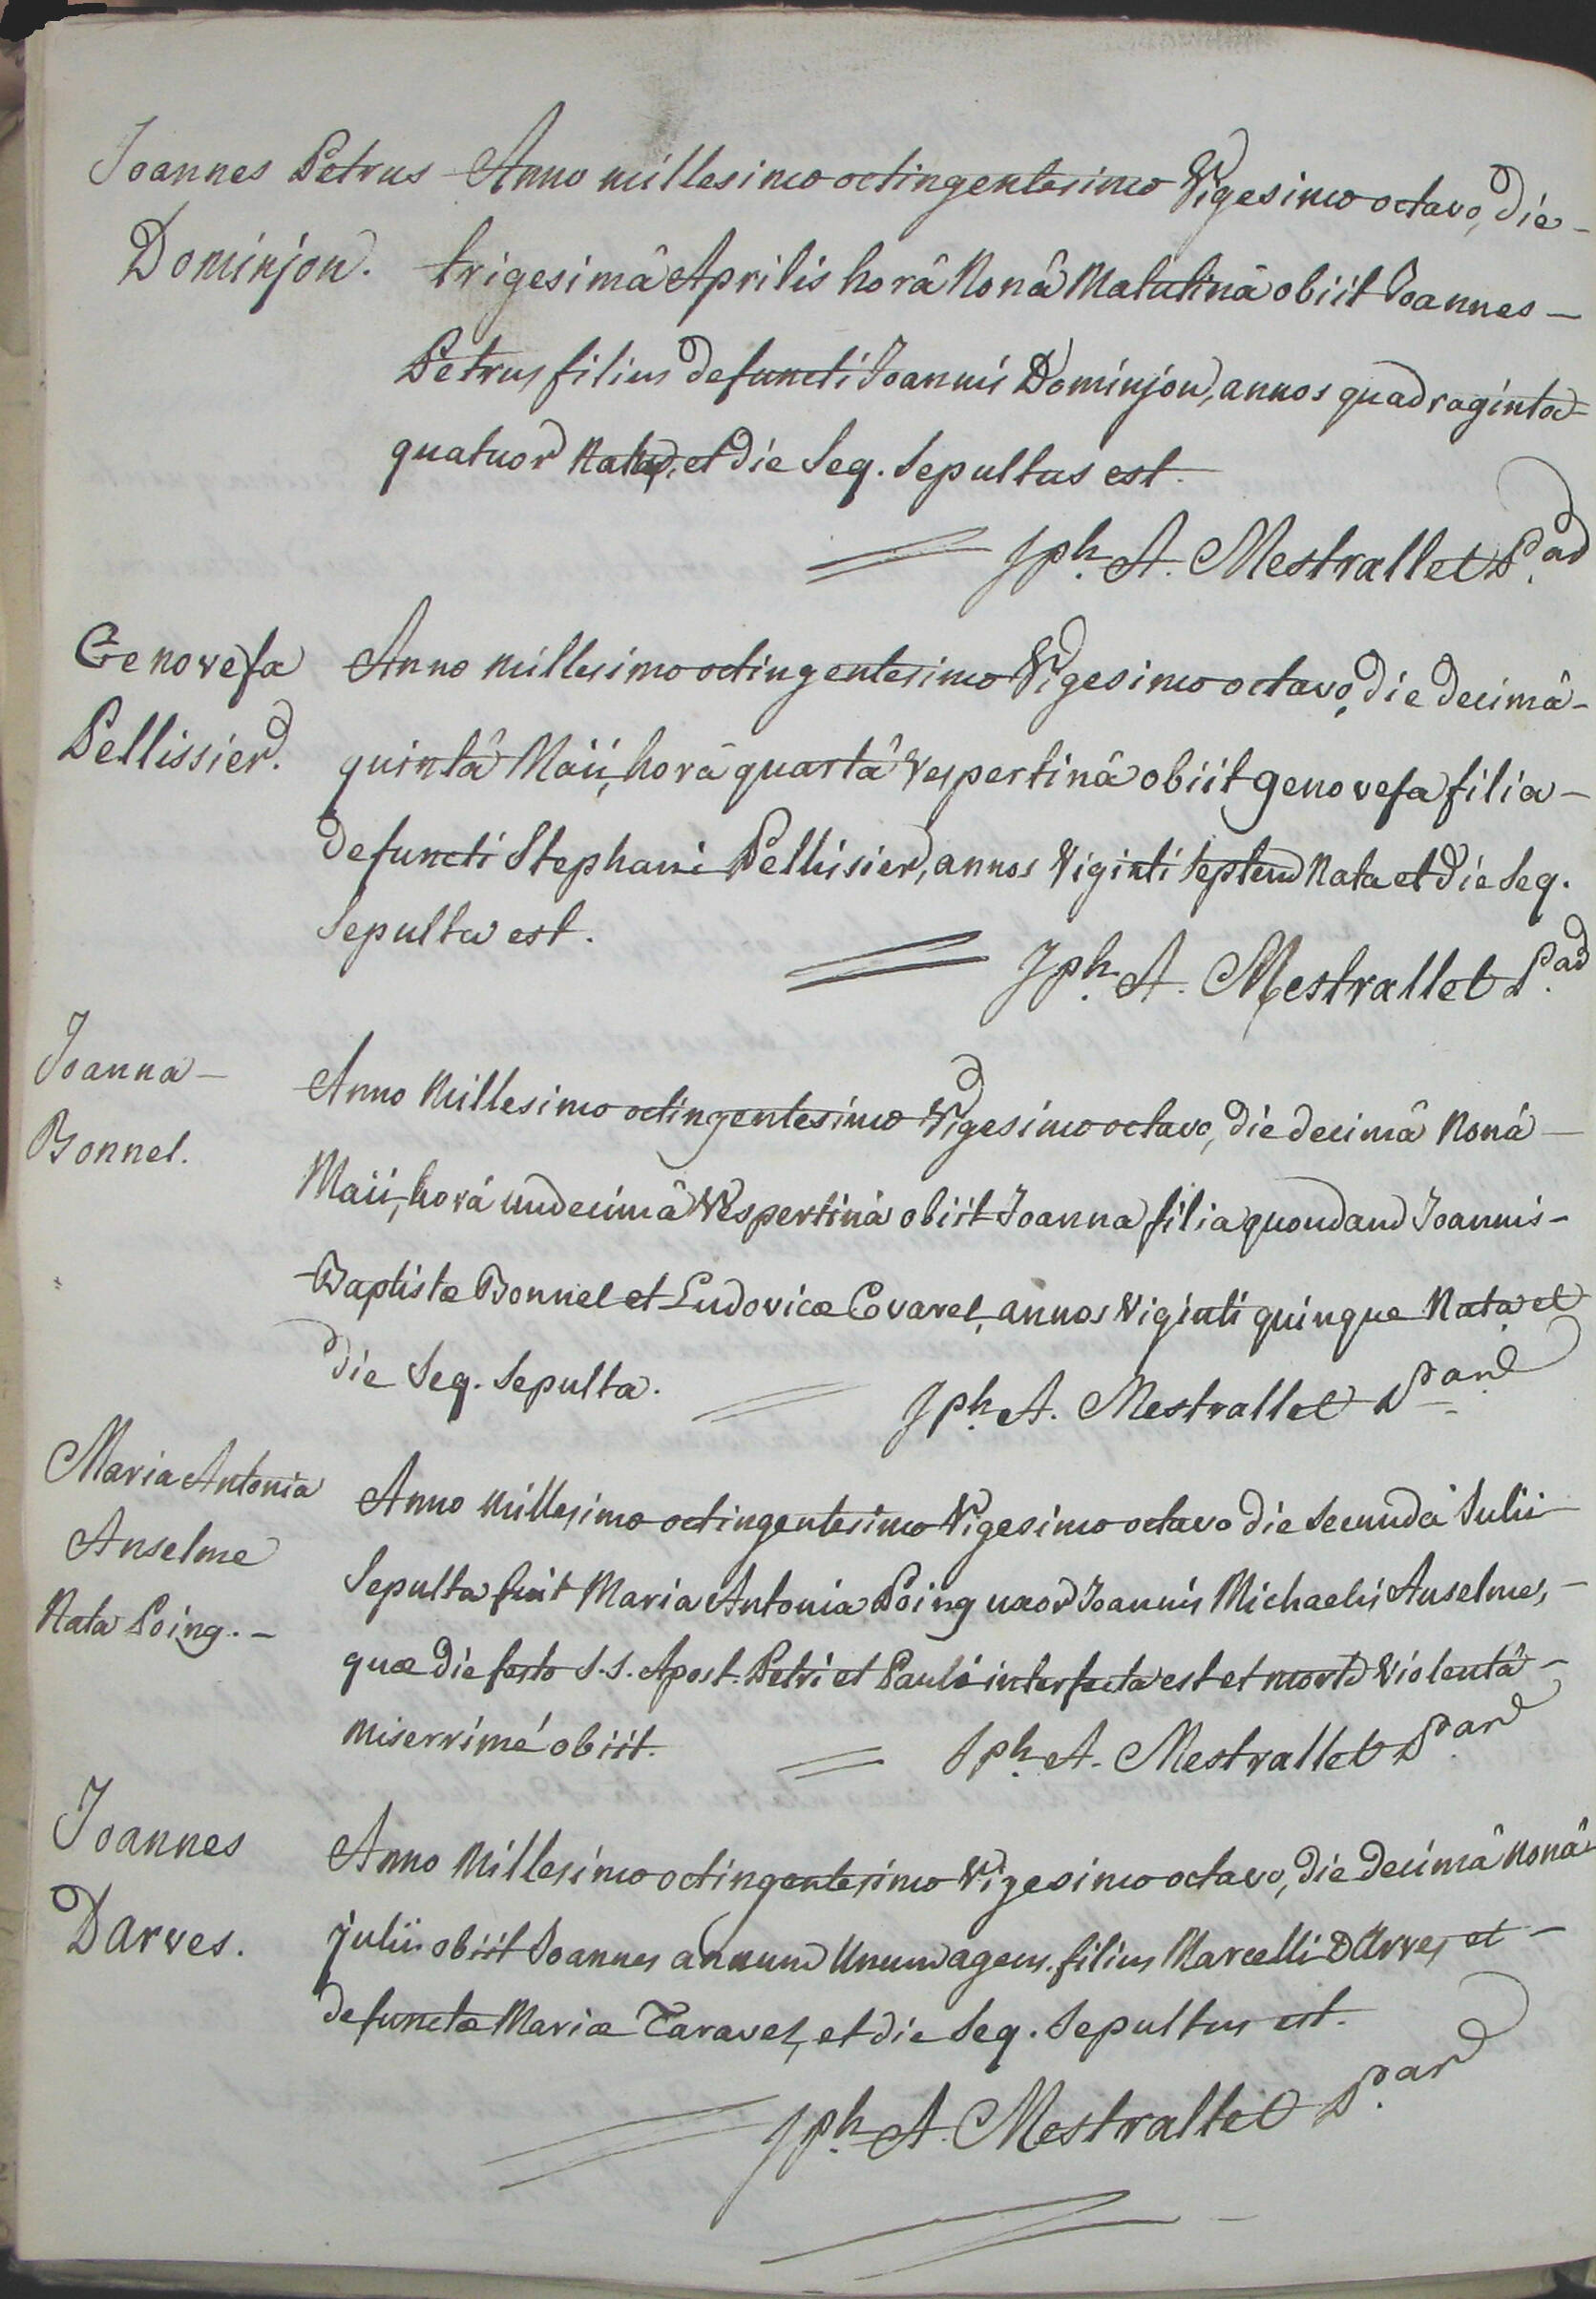 Joannes Petrus
Dominjon.
Anno millesimo octingentesimo Vigesimo octavo, die
trigesimâ Aprilis horâ Nonâ Matutinâ obiit Joannes
Petrus filius defuncti Joannis Dominjon, annos quadraginta
quatuor Natus, et die Seq. Sepultus est.
Jph. A. Mestrallet
Genovefa
Pellissier.
Anno millesimo octingentesimo Vigesimo octavo, die decimâ
quintâ Maii, horâ quartâ Vespertinâ obiit genovefa filia
defuncti Stephani Pellissier, annos Viginti Septem Nata et die Seq.
Sepulta est.
Jph. A. Mestrallet
Joanna
Bonnel.
Anno Millesimo octingentesimo Vigesimo octavo, die decimâ Nonâ
Maii, horâ undecimâ Vespertinâ obiit Joanna filia quondam Joannis
Baptistæ Bonnel et Ludovicæ Covarel, annos Viginti quinque Nata et
die Seq. Sepulta.
Jph. A. Mestrallet
Maria Antonia
Anselme
Nata Poing.
Anno Millesimo octingentesimo Vigesimo octavo die Secundâ Julii
Sepulta fuit Maria Antonia Poing uxor Joannis Michaelis Anselme,
quæ die festo S.S. Apost. Petri et Pauli interfecta est et morte Violentâ
Miserrimé obiit.
Jph. A. Mestrallet
Joannes
Darves.
Anno Millesimo octingentesimo Vigesimo octavo, die decimâ nonâ
julii obiit Joannes annum Unum agens, filius Marcelli Darves et
defunctæ Mariæ Taravel, et die Seq. Sepultus est.
Jph. A. Mestrallet